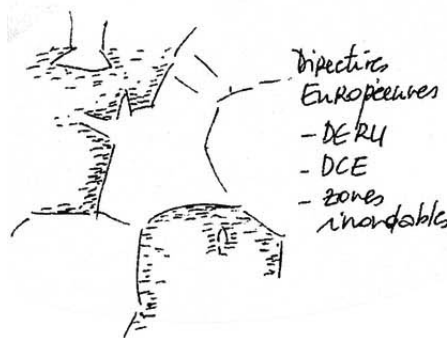 Directives
Européennes
- DERU
- DCE
- zones
inondables